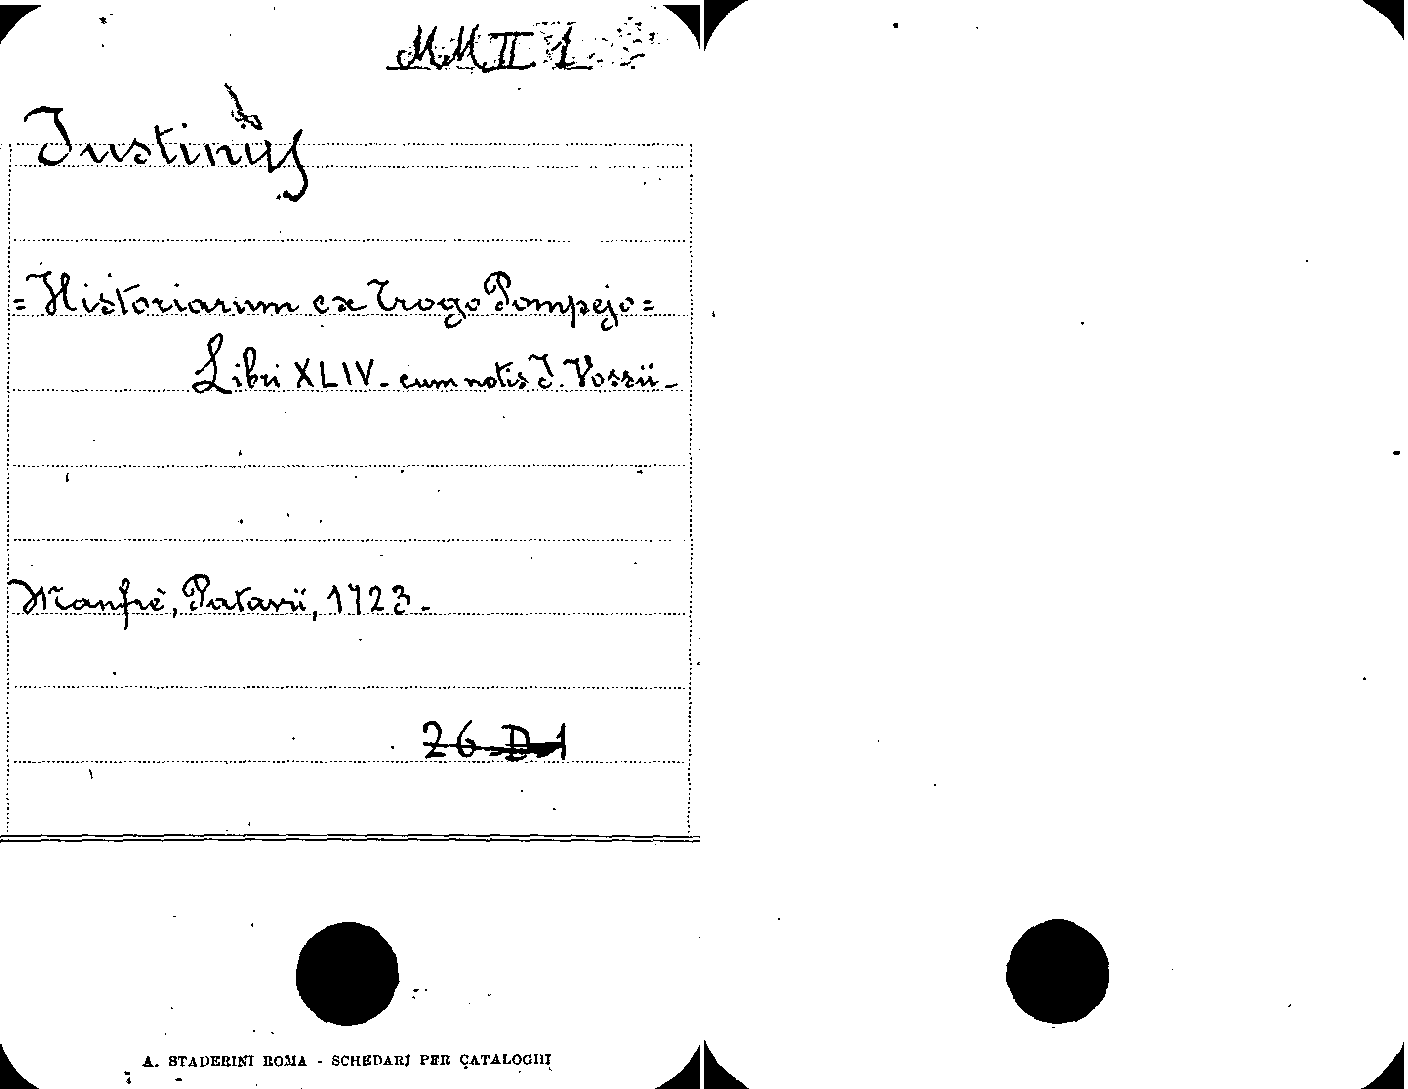 MM II 1
Justinus
= Historiarum ex Trogo Pompejo =
Libri XLIV - cum notis J. Vossii -
Manfrè, Patavii, 1723 -
26 D 1
A. STADERINI ROMA - SCHEDARJ PER CATALOGHI